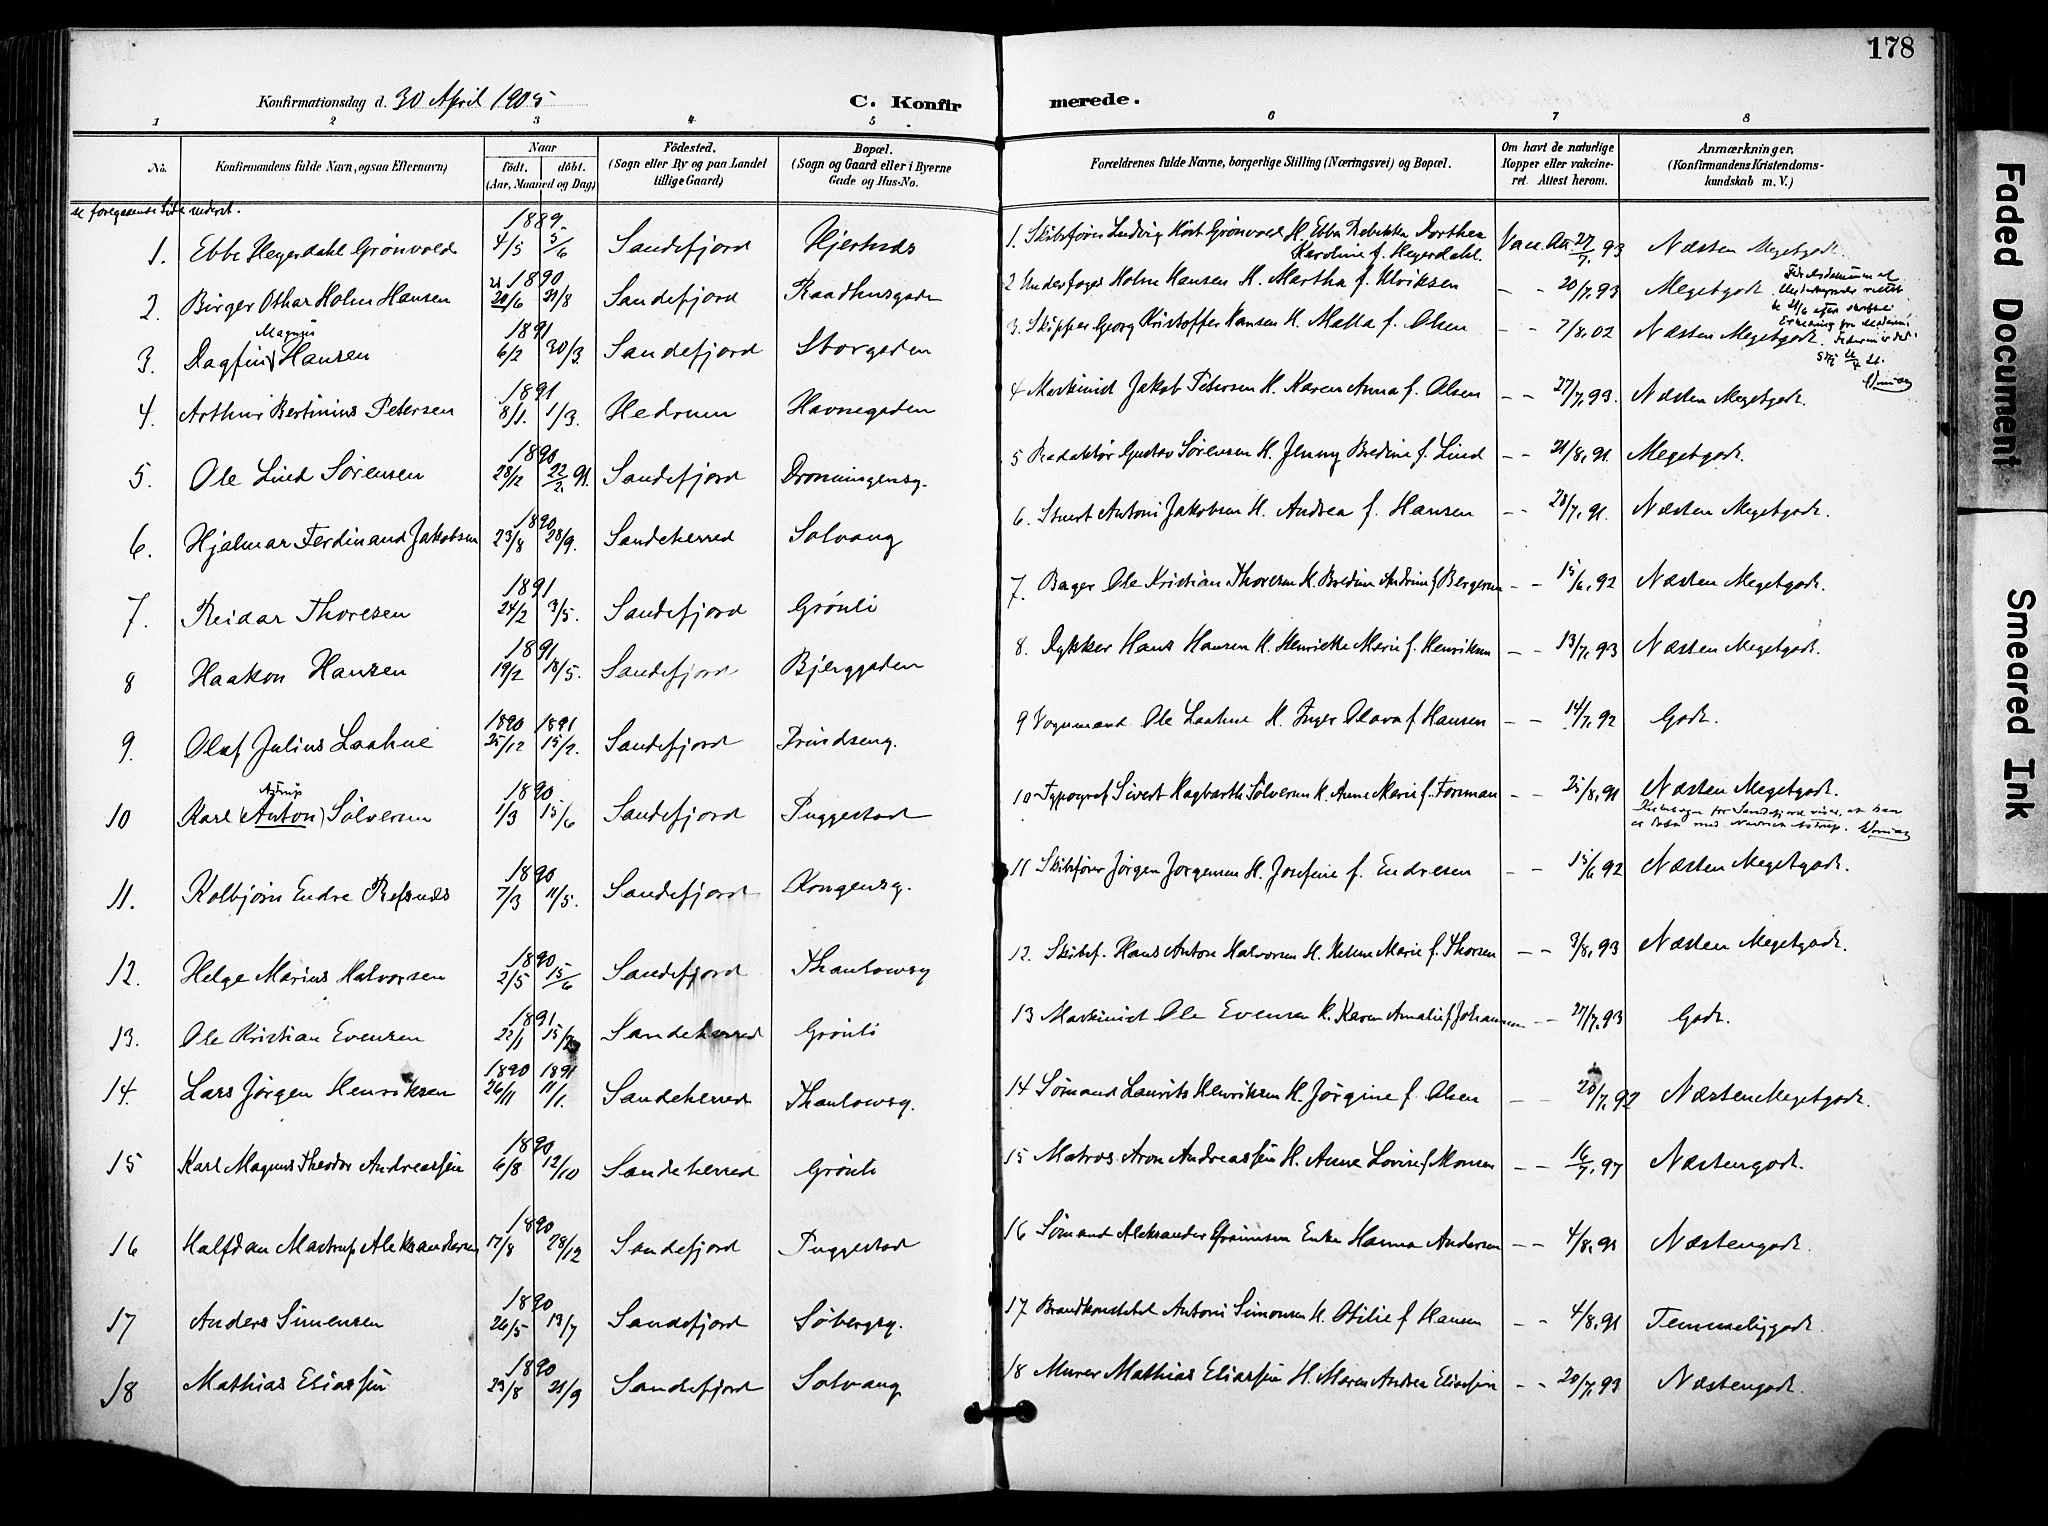 178
Konfirmationsdag d. 30 April 1905
C. Konfirmerede.
1 2 3 4 5 6 7 8
No. Konfirmandens fulde Navn, ogsaa Efternavn) Naar født. døbt. (Aar, Maaned og Dag) Födested. (Sogn eller By og paa Landet tillige Gaard.) Bopæl. (Sogn og Gaard eller i Byerne Gade og Hus-No. Forældrenes fulde Navne, borgerlige Stilling (Næringsvei) og Bopæl. Om havt de naturlige Kopper eller vakcineret. Attest herom. Anmærkninger. (Konfirmandens Kristendomskundskab m. V.)
se foregaaende Side nederst.
1. Ebbe Heyerdahl Grønvold 1889. 4/5 5/6 Sandefjord Hjertnes 1. Skibsfører Ludvig Høst Grønvold H. Ebba Rebekka Dorthea Karoline f. Heyerdahl. Vacc. Att. 27/7. 93 Næsten Megetgodt.
2. Birger Othar Holm Hansen 1890 21 20/6 31/8 Sandefjord Raadhusgaden 2 Underfoged Holm Hansen H. Martha f. Ulriksen - - 20/7. 93 Megetgodt.
3. Dagfin Magnus Hansen 1891 6/2 30/3. Sandefjord Storgaden 3. Skipper Georg Kristoffer Hansen H. Malla f. Olsen - - 7/8. 02 Næsten Megetgodt.
4. Arthur Bertinius Petersen 1891 8/1. 1/3. Hedrum Havnegaden 4 Maskinist Jakob Petersen H. Karen Anna f. Olsen - - 27/7. 93. Næsten Megetgodt.
5. Ole Lind Sørensen 1890 28/12 22/2. 91. Sandefjord Dronningensg. 5 Redaktør Gustav Sørensen H. Jenny Bredine f. Lind - - 21/8. 91. Megetgodt.
6. Hjalmar Ferdinand Jakobsen 1890 23/8 28/9. Sandeherred Solvang 6. Stuert Anton Jakobsen H. Andrea f. Hansen - - 28/7. 91. Næsten Megetgodt.
7. Reidar Thoresen 1891 24/2 3/5. Sandefjord Grønli 7. Bager Ole Kristian Thoresen H. Bredine Andrine f. Bergersen - - 15/6. 92 Næsten Megetgodt.
8 Haakon Hansen 1891 19/2 18/5. Sandefjord Bjerggaden 8. Dykker Hans Hansen H. Henriette Marie f. Henriksen - - 13/7. 93 Næsten Megetgodt.
9. Olaf Julius Laahne 1890 25/12 1891 15/2. Sandefjord Prindseng. 9 Vognmand Ole Laahne H. Inger Olava f. Hansen - - 14/7. 92 Godt.
10 Karl (Anton) Astrup Sølversen 1890 1/3 15/6 Sandefjord Puggestad 10 Typograf Sivert Hagbarth Sølversen H. Anne Marie f. Formann - - 25/8. 91 Næsten Megetgodt.
Kirkebogen for Sandefjord viser, at han er døbt med Navnet Astrup.
11. Kolbjørn Endre Refsnes 1890 7/3 11/5. Sandefjord Kongensg. 11 Skibsfører Jørgen Jørgensen H. Josefine f. Endresen - - 15/6. 92 Næsten Megetgodt.
12. Helge Marius Halvorsen 1890 2/5 15/6 Sandefjord Thaulowsg 12. Skibsf. Hans Anton Halvorsen H. Helene Marie f. Thorsen - - 3/8. 93 Næsten Megetgodt.
13. Ole Kristian Evensen 1891 22/1 15/2 Sandeherred Grønli 13 Maskinist Ole Evensen H. Karen Amalie f. Johannesen - - 27/7. 93 Godt.
14. Lars Jørgen Henriksen 1890 26/11 1891 11/1. Sandeherred Thaulowsg. 14 Sømand Laurits Henriksen H. Jørgine f. Olsen - - 20/7. 92 Næsten Megetgodt.
15 Karl Magnus Theodor Andreassen 1890 6/8 12/10 Sandeherred Grønli 15 Matros Aron Andreassen H. Anne Lovise f. Monsen - - 16/7. 97 Næstengodt.
16 Halfdan Mastrup Aleksandersen 1890 17/8 28/12 Sandefjord Puggestad 16 Sømand Aleksander Enke Hanna Andersen - - 4/8. 91 Næstengodt.
17 Anders Simensen 1890 26/5 13/7 Sandefjord Søbergsg. 17 Brandkonstabel Anton Simonsen H. Otilie f. Hansen - - 4/8. 91 Temmeliggodt.
18 Mathias Eliassen 1890 23/8 21/9 Sandefjord Solvang 18 Murer Mathias Eliassen H. Maren Andrea Eliassen - - 20/7. 93 Næstengodt.
Faded Document
Smeared Ink